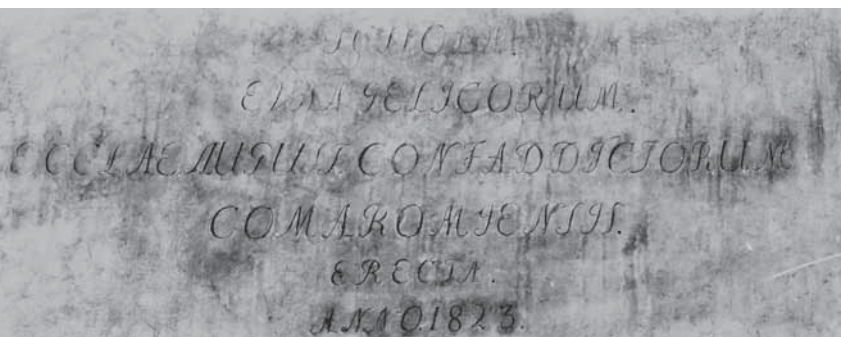 EVANGELICORUM.
ECCLAE AUGUST CONF ADDICTORUM
COMAROMIENSIS.
ERECTA.
ANNO.1823.